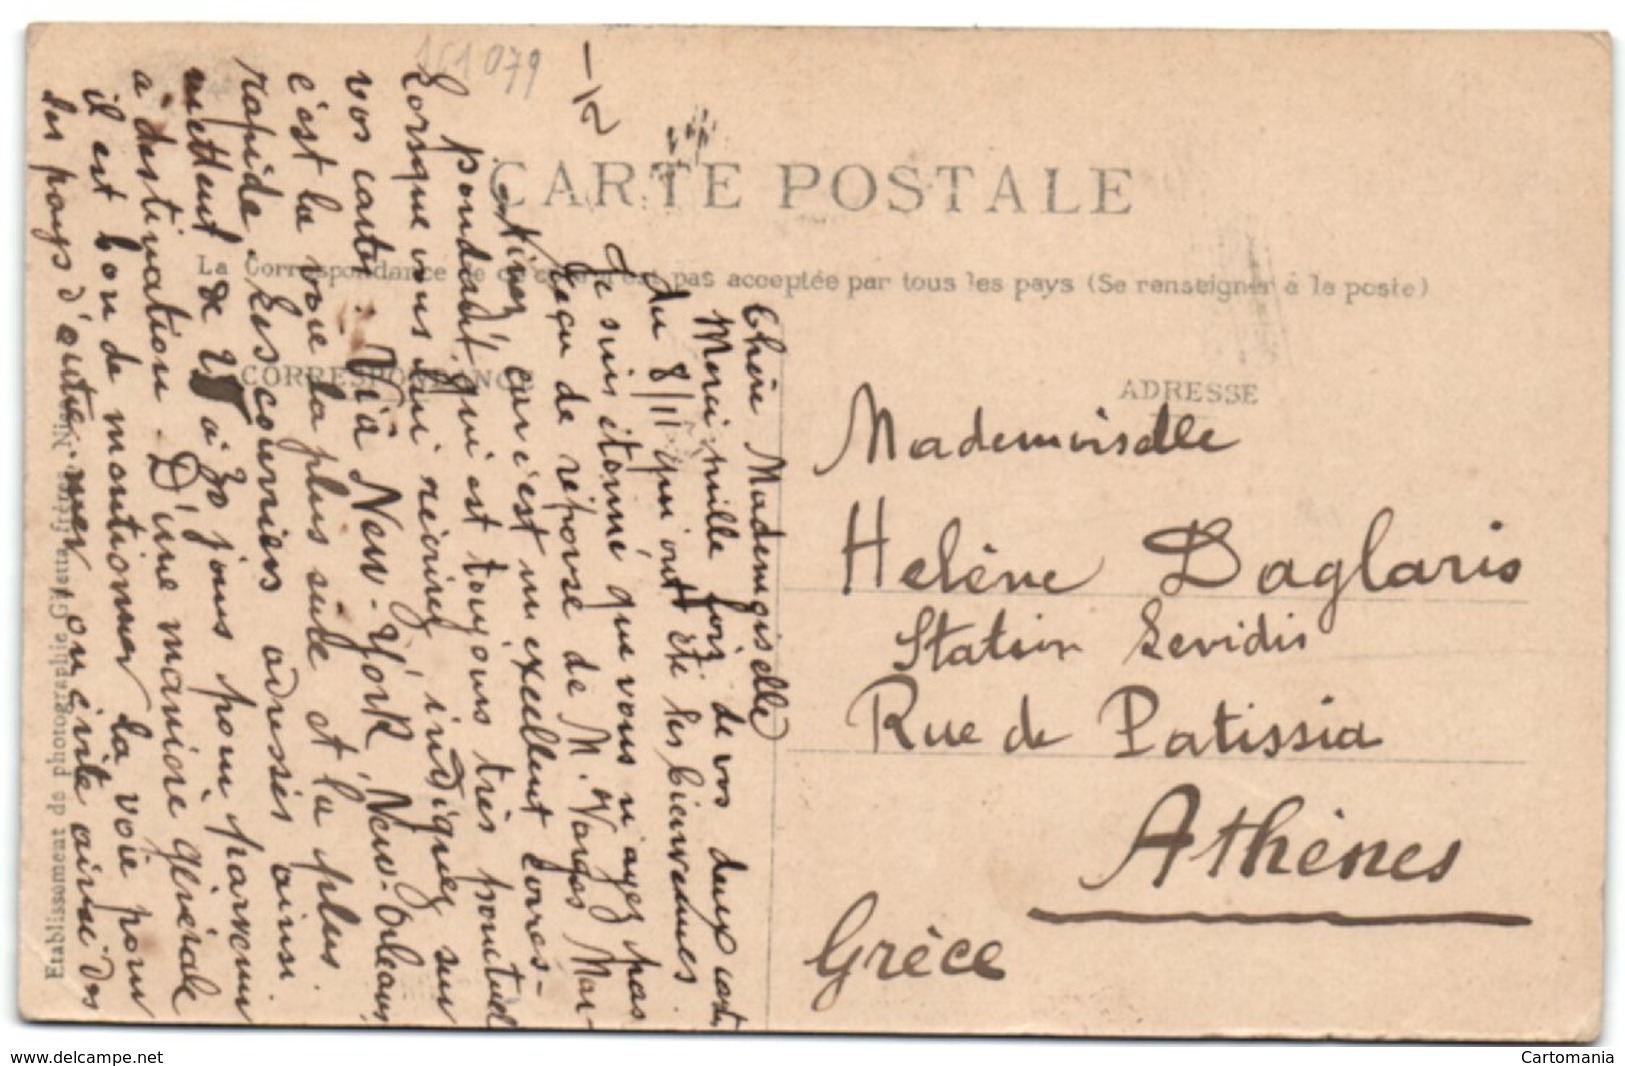 161079
CARTE POSTALE
La Correspondance ce pas acceptée par tous les pays (Se renseigner à la poste)
CORRESPONDANCE
ADRESSE
Chère Mademoiselle
Merci mille fois de vos deux cart
du 8/11 qui ont été les bienvenues.
Je suis étonné que vous n'ayez pas
reçu de réponse de M. Vargas Mar-
tinez, car c'est un excellent corres-
pondant, qui est toujours très ponctuel
Lorsque vous lui récrirez, indiquez sur
vos cartes : Via New-York, New-Orleans
c'est la voie la plus sûre et la plus
rapide. Les courriers adressés ainsi
mettent de 25 à 30 jours pour parvenir
à destination. D'une manière générale
il est bon de mentionner la voie pour
les pays d'outre-mer, on évite ainsi des
Mademoiselle
Helène Daglaris
Station Levidis
Rue de Patissia
Athènes
Grèce
Etablissement de photographie frères, Nice
www.delcampe.net
Cartomania